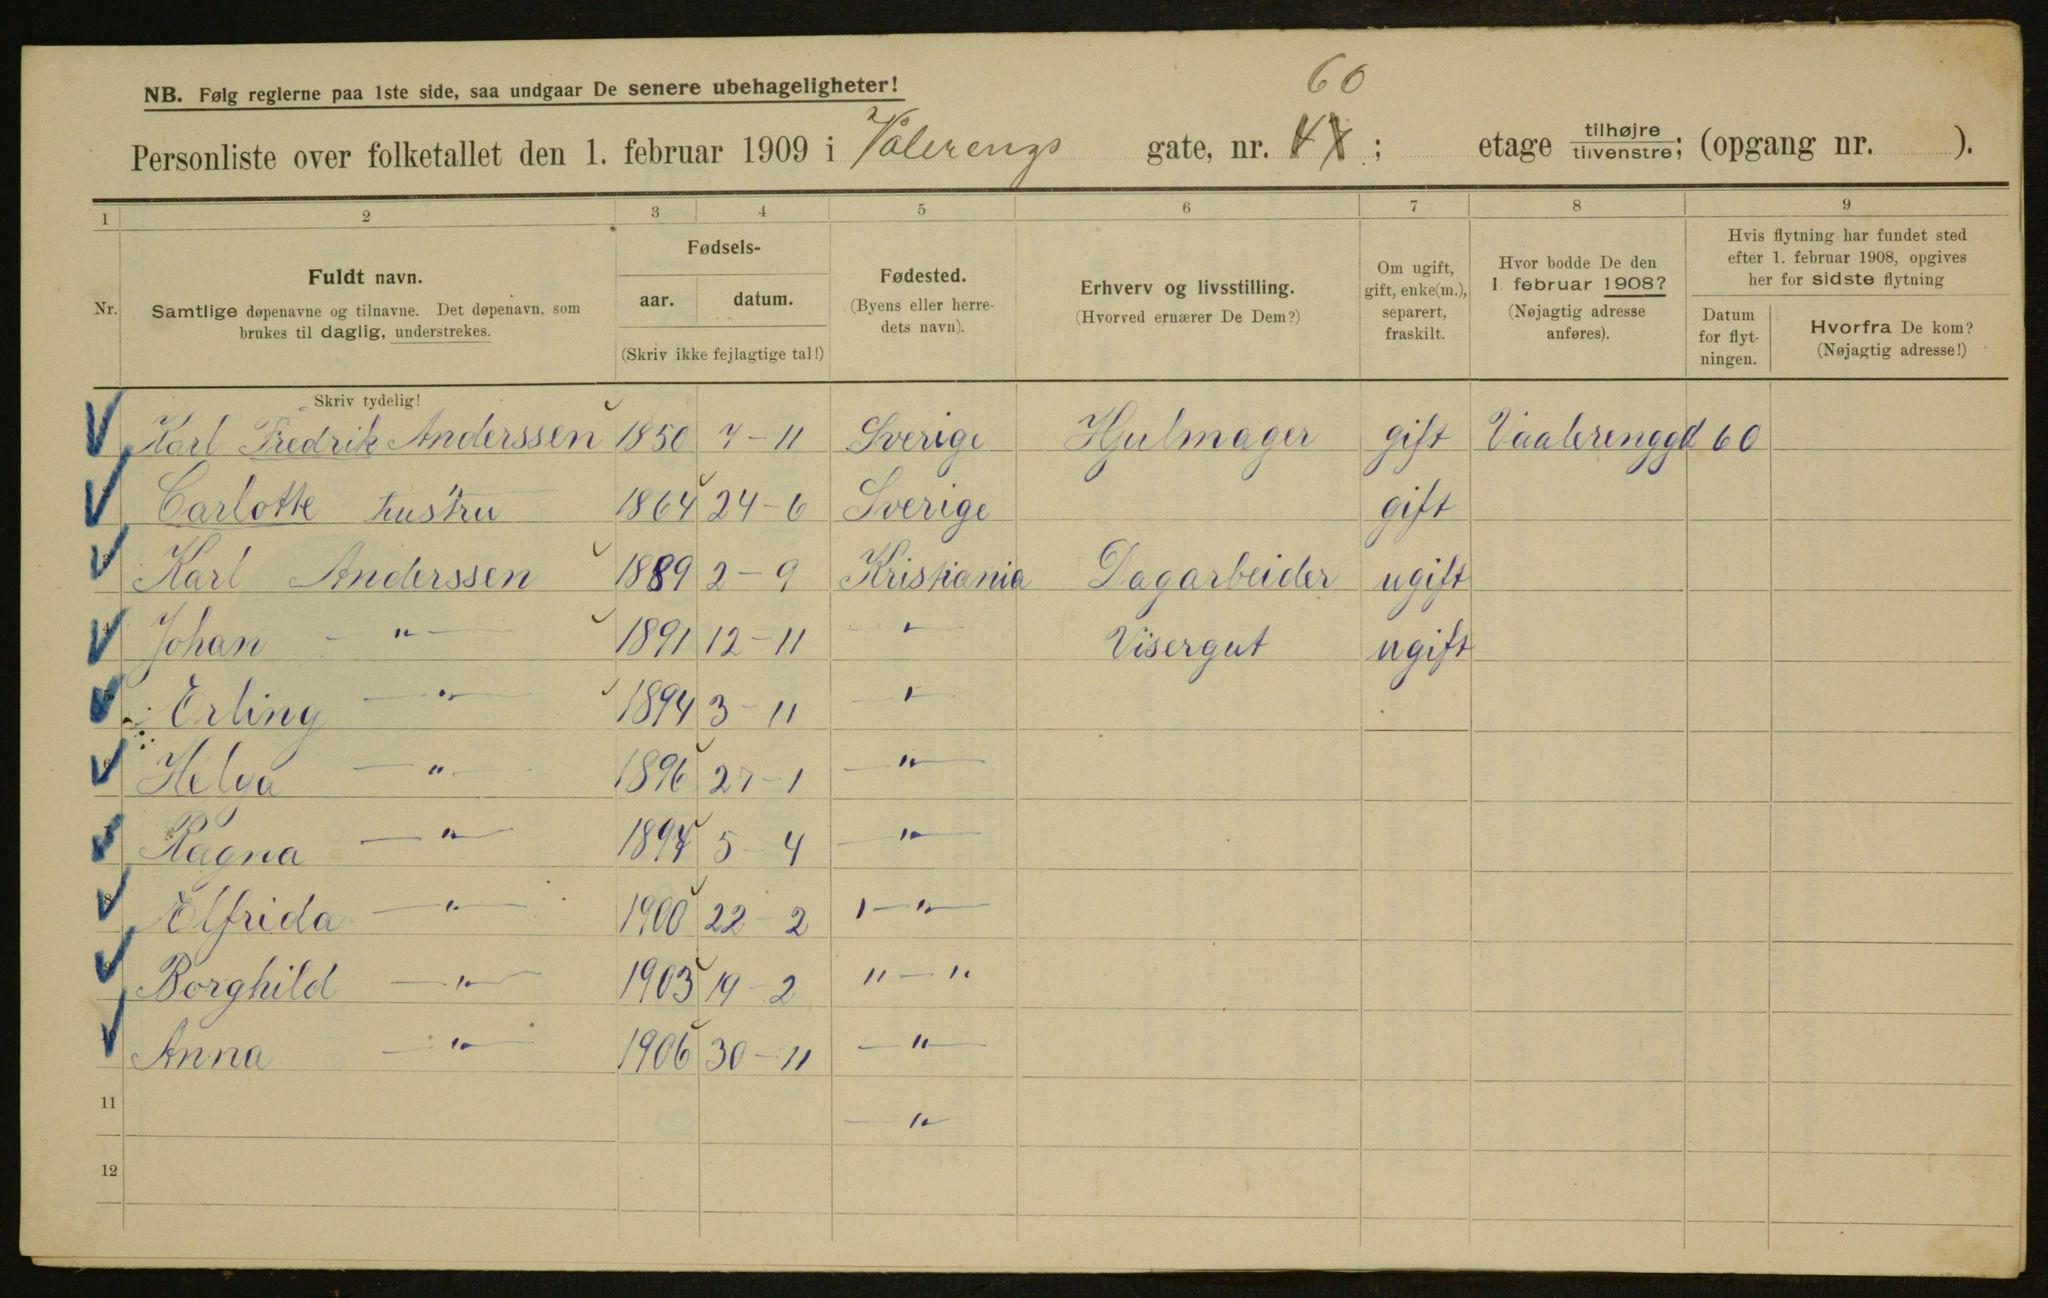 60
NB. Følg reglerne paa 1ste side, saa undgaar De senere ubehageligheter!
Personliste over folketallet den 1. februar 1909 i Vålerengs gate, nr. ; etage tilhøjre tilvenstre; (opgang nr. ).
1 2 3 4 5 6 7 8 9
Nr.
Fuldt navn.
Samtlige døpenavne og tilnavne. Det døpenavn, som
brukes til daglig, understrekes.
Skriv tydelig!
Fødsels-
aar. datum.
(Skriv ikke fejlagtige tal!)
Fødested.
(Byens eller herre-
dets navn).
Erhverv og livsstilling.
(Hvorved ernærer De Dem?)
Om ugift,
gift, enke(m.),
separert,
fraskilt.
Hvor bodde De den
1. februar 1908?
(Nøjagtig adresse
anføres).
Hvis flytning har fundet sted
efter 1. februar 1908, opgives
her for sidste flytning
Datum
for flyt-
ningen.
Hvorfra De kom?
(Nøjagtig adresse!)
Karl Fredrik Anderssen 1850 7-11 Sverige Hjulmager gift Vaalerenggd 60
Carlotte hustru 1864 24-6 Sverige gift
3 Karl Anderssen 1889 2-9 Kristiania Dagarbeider ugift
4 Johan -"- 1891 12-11 -"- Visergut ugift
5 Erling -"- 1894 3-11 -"-
6 Helga -"- 1896 27-1 -"-
Ragna -"- 5-4 -"-
8 Elfrida -"- 1900 22-2 -"-
9 Borghild -"- 1903 19-2 "-"
Anna -"- 1906 30-11 -"-
11 -"-
12